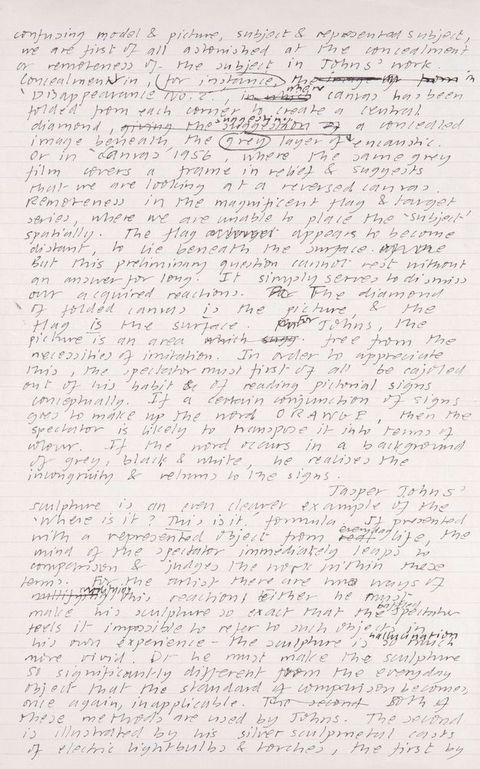 confusing model & picture, subject & represented subject,
we are first of all astonished at the concealment
or remoteness of the subject in Johns' work.
Concealment in, for instance, the in
'Disappearance No. 2', in which canvas has been
folded from each corner to create a central
diamond, giving the suggestion of suggesting a concealed
image beneath the grey layer of encaustic.
Or in 'Canvas' 1956, where the same grey
film covers a frame in relief & suggests
that we are looking at a reversed canvas.
Remoteness in the magnificent flag & target
series, where we are unable to place the 'subject'
spatially. The flag appears to become
distant, to lie beneath the surface.
But this preliminary question cannot rest without
an answer for long. It simply serves to dismiss
our acquired reactions. The diamond
of folded canvas is the picture, & the
flag is the surface. For Johns, the
picture is an area which free from the
necessities of imitation. In order to appreciate
this, the spectator must first of all be cajoled
out of his habit of reading pictorial signs
conceptually. If a certain conjunction of signs
goes to make up the word ORANGE, then the
spectator is likely to transpose it into terms of
colour. If the word occurs in a background
of grey, black & white, he realises the
incongruity & returns to the signs.
Jasper Johns'
sculpture is an even clearer example of the
'Where is it? This is it.' formula. If presented
with a represented object from real everyday life, the
mind of the spectator immediately leaps to
comparison & judges the work within these
terms. For the artist there are two ways of
this reaction: either he must
make his sculpture so exact that the baffled spectator
feels it impossible to refer to such objects in
his own experience – the sculpture is so much hallucination
more vivid. Or he must make the sculpture
so significantly different from the everyday
object that the standard of comparison becomes,
once again, inapplicable. The second Both of
these methods are used by Johns. The second
is illustrated by his silver sculpmetal casts
of electric lightbulbs & torches, the first by